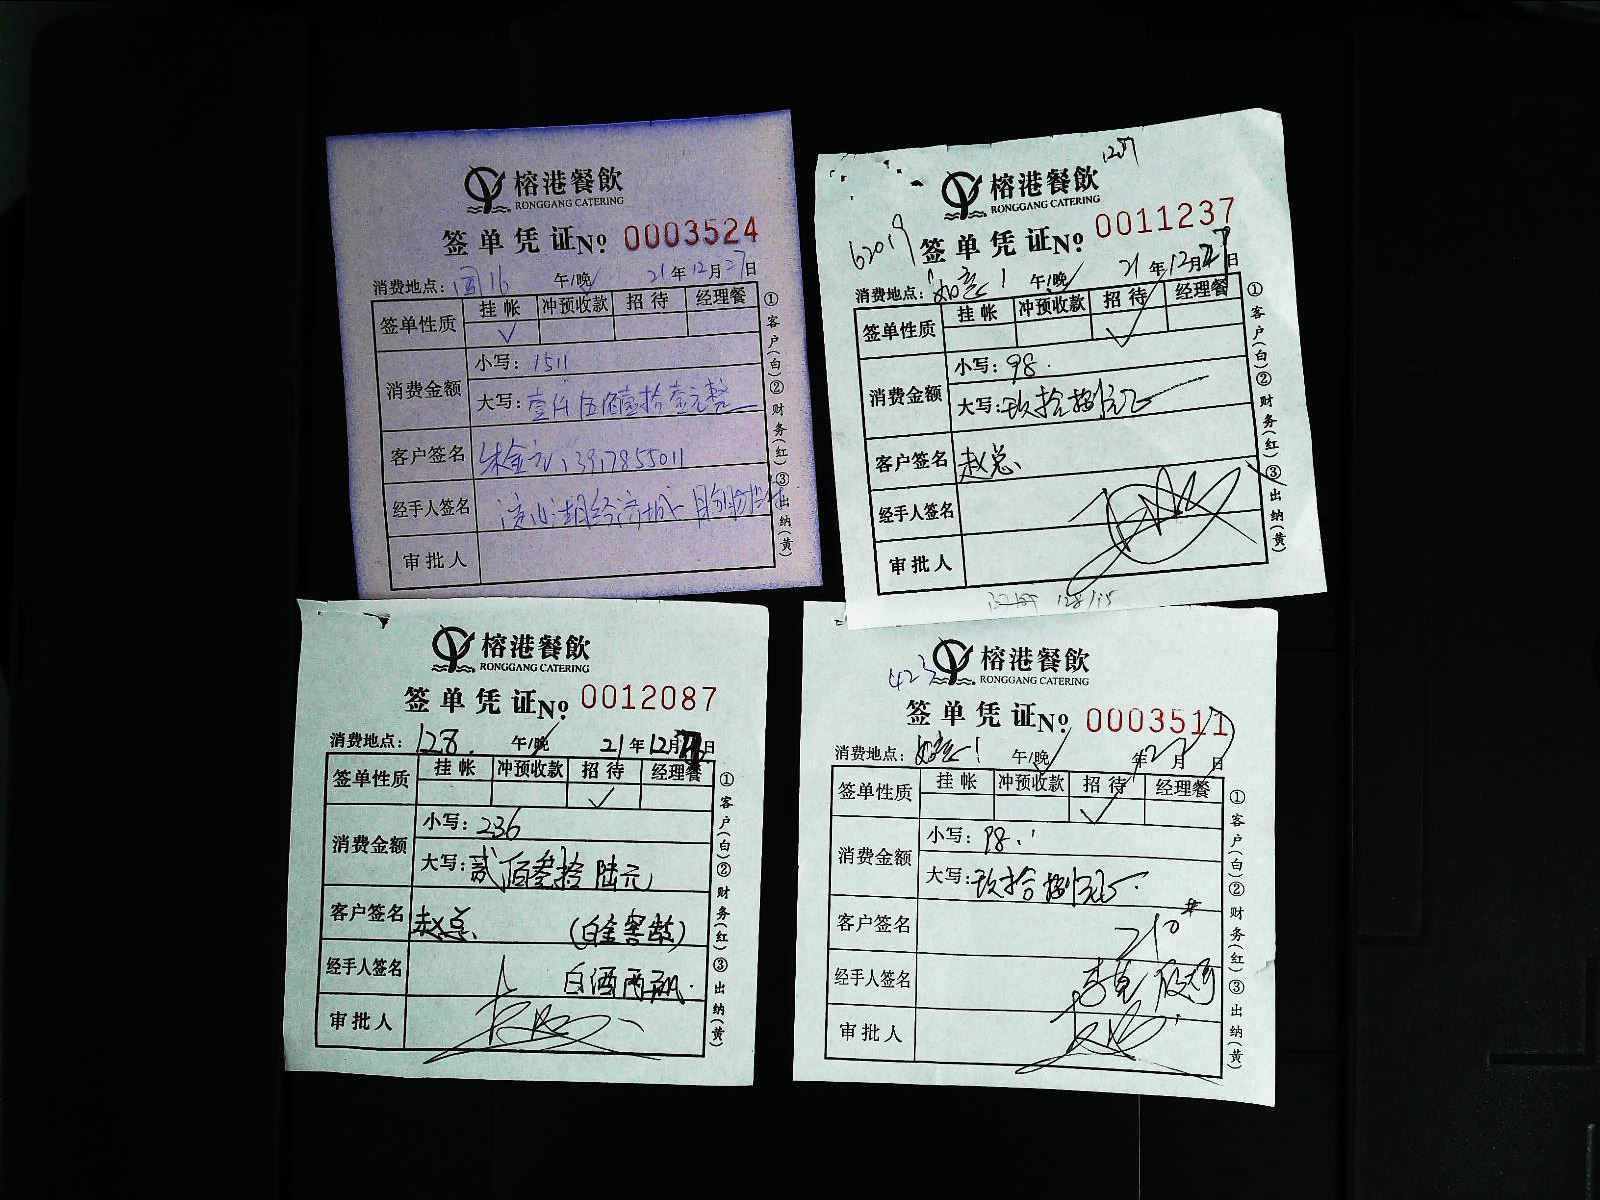 榕港餐飲
RONGGANG CATERING
签单凭证№ 0003524
消费地点: 16 午/晚 21年12月27日
签单性质 挂帐 冲预收款 招待 经理餐
✓
消费金额 小写: 1511
大写: 壹仟伍佰壹拾壹元整
客户签名 朱金 13917855011
经手人签名 淀山湖经济城
审批人
①客户(白)②财务(红)③出纳(黄)
1237
榕港餐飲
RONGGANG CATERING
62019
签单凭证№ 0011237
消费地点: 如意1 午/晚 21年12月27日
签单性质 挂帐 冲预收款 招待 经理餐
✓
消费金额 小写: 98.
大写: 玖拾捌元
客户签名 赵总
经手人签名
审批人
①客户(白)②财务(红)③出纳(黄)
榕港餐飲
RONGGANG CATERING
签单凭证№ 0012087
消费地点: 128. 午/晚 21年12月 日
签单性质 挂帐 冲预收款 招待 经理餐
✓
消费金额 小写: 236
大写: 贰佰叁拾陆元
客户签名 赵总 (白金窖龄)
经手人签名 白酒两瓶.
审批人
①客户(白)②财务(红)③出纳(黄)
榕港餐飲
RONGGANG CATERING
签单凭证№ 0003511
消费地点: 如意1 午/晚 年 月 日
签单性质 挂帐 冲预收款 招待 经理餐
✓
消费金额 小写: 98.
大写: 玖拾捌元
客户签名 210#
经手人签名
审批人
①客户(白)②财务(红)③出纳(黄)